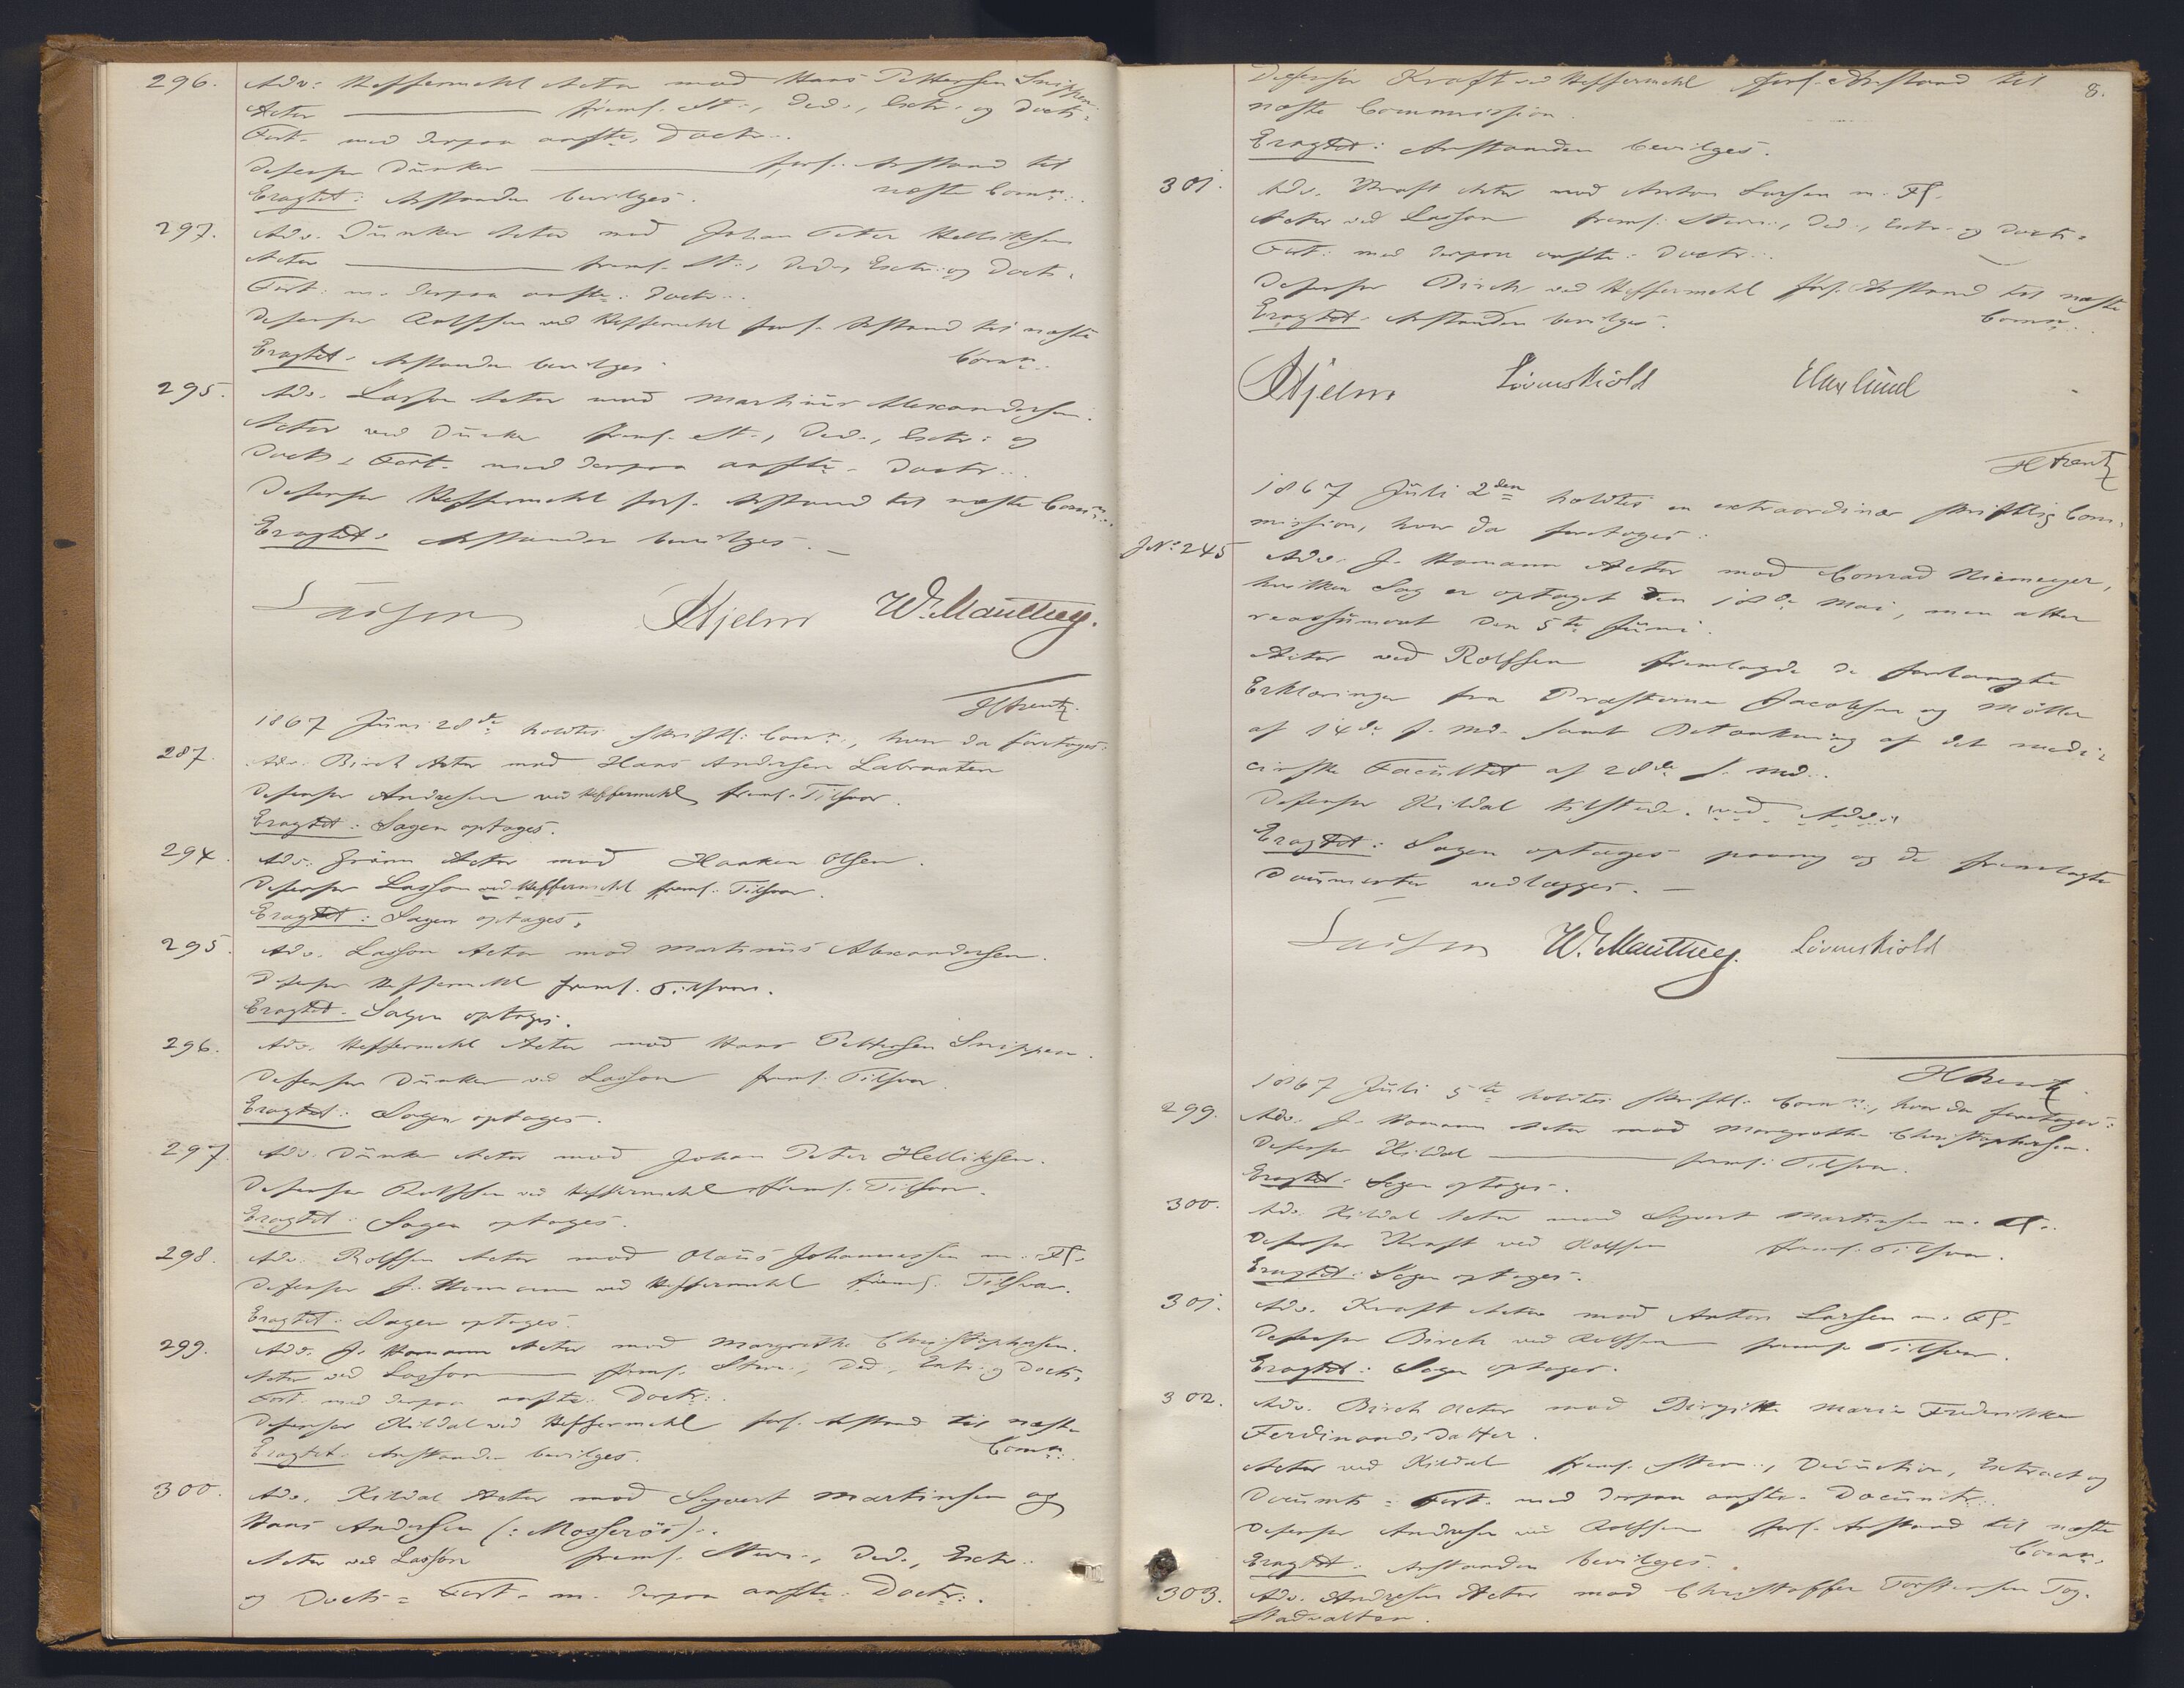 296. Adv. Heffermehl Actor mod Hans Pettersen Snippen.
Actor ——— freml. St., Ded., Extr. og Docts-
Fort. med derpaa anfte. Doctr..
Defensor Dunker ——— forl. Anstand til
næste Comn..
Eragtet: Anstanden bevilges.
297. Adv. Dunker Actor mod Johan Peter Helliksen
Actor ——— freml. St., Ded., Extr. og Docts-
Fort. m. derpaa anfte. Doctr..
Defensor Rolffsen ved Heffermehl forl. Anstand til næste
Comn..
Eragtet: Anstanden bevilges.
295. Adv. Lasson Actor mod Martinus Alexandersen.
Actor ved Dunker freml. St., Ded., Extr. og
Docts Fort. med derpaa anfte. Doctr..
Defensor Heffermehl forl. Anstand til næste Comn..
Eragtet: Anstanden bevilges. —
Lasson Hjelm W. Manthey.
HArentz
1867 Juni 28de holdtes skriftl. Comn., hvor da foretoges:
287. Adv. Birch Actor mod Hans Andersen Labraaten
Defensor Andresen ved Heffermehl freml. Tilsvar.
Eragtet: Sagen optages.
294. Adv. Grönn Actor mod Haaken Olsen.
Defensor Lasson ved Heffermehl freml. Tilsvar.
Eragtet: Sagen optages.
295. Adv. Lasson Actor mod Martinus Alexandersen.
Defensor Heffermehl freml. Tilsvar.
Eragtet: Sagen optages.
296. Adv. Heffermehl Actor mod Hans Pettersen Snippen.
Defensor Dunker ved Lasson freml. Tilsvar.
Eragtet: Sagen optages.
297. Adv. Dunker Actor mod Johan Peter Helliksen.
Defensor Rolffsen ved Heffermehl freml. Tilsvar.
Eragtet: Sagen optages.
298. Adv. Rolffsen Actor mod Olaus Johannessen m. Fl.
Defensor J. Homann ved Heffermehl freml. Tilsvar.
Eragtet: Sagen optages.
299. Adv. J. Homann Actor mod Margrethe Christophersen.
Actor ved Lasson — freml. Stevn., Ded., Extr. og Docts-
Fort. med derpaa anfte. Doctr.:
Defensor Kildal ved Heffermehl forl. Anstand til næste
Comn..
Eragtet: Anstanden bevilges.
300. Adv. Kildal Actor mod Syvert Martinsen og
Hans Andersen (: Mosserös).
Actor ved Lasson freml. Stevn., Ded., Extr.
og Docts = Fort. m. derpaa anfte. Doctr..
8.
Defensor Kraft ved Heffermehl forl. Anstand til
næste Commission.
Eragtet: Anstanden bevilges.
301. Adv. Kraft Actor mod Anton Larsen m. Fl.
Actor ved Lasson freml. Stevn., Ded., Extr. og Docts-
Fort. med derpaa anfte. Doctr..
Defensor Birch ved Heffermehl forl. Anstand til næste
Comn..
Eragtet: Anstanden bevilges.
Hjelm Lövenskiold
HArentz
1867 Juli 2den holdtes en extraordinær skriftlig Com-
mission, hvor da foretoges:
JNo 245 Adv. J. Homann Actor mod Conrad Niemeyer,
hvilken Sag er optaget den 18de Mai, men atter
reassumeret den 5te Juni.
Actor ved Rolffsen fremlagde de forlangte
Erklæringer fra Præsterne Jacobsen og Möller
af 14de f. Md. samt Betænkning af det medi-
cinske Facultet af 28de f. Md..
Defensor Kildal tilstede. ved Adv.
Eragtet: Sagen optages paany og de fremlagte
Documenter vedlægges. —
Lasson W. Manthey. Lövenskiold
HArentz
1867 Juli 5te holdtes skriftl. Comn., hvor da foretoges:
299. Adv. J. Homann Actor mod Margrethe Christophersen.
Defensor Kildal ——— freml. Tilsvar.
Eragtet: Sagen optages.
300. Adv. Kildal Actor mod Syvert Martinsen m. Fl.
Defensor Kraft ved Rolffsen freml. Tilsvar.
Eragtet: Sagen optages.
301. Adv. Kraft Actor mod Anton Larsen m. Fl.
Defensor Birch ved Rolffsen freml. Tilsvar.
Eragtet: Sagen optages.
302. Adv. Birch Actor mod Birgitte Marie Frederikke
Ferdinandsdatter.
Actor ved Kildal freml. Stevn., Deduction, Extract og
Documts = Fort. med derpaa anfte. Documtr..
Defensor Andresen ved Rolffsen forl. Anstand til næste
Comn.
Eragtet: Anstanden bevilges.
303. Adv. Andresen Actor mod Christoffer Torstensen Tog-
stadvalten.